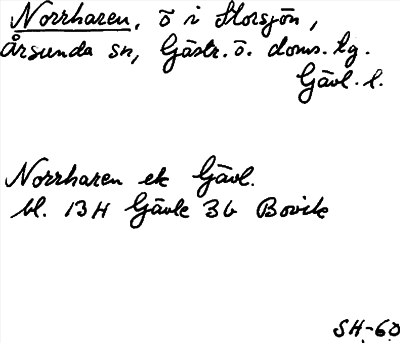 Norrharen, ö i Storsjön,
Årsunda sn, Gästr. ö. doms. tg.
Gävl. l.
Norrharen ek Gävl.
bl. 13H Gävle 3b Bovik
SH-60